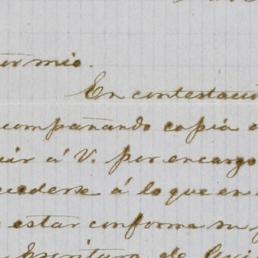 or mio.
En contestaci
compañando copia
uir á V. por encargo
cederse á lo que en
estar conforme su
Escritura de